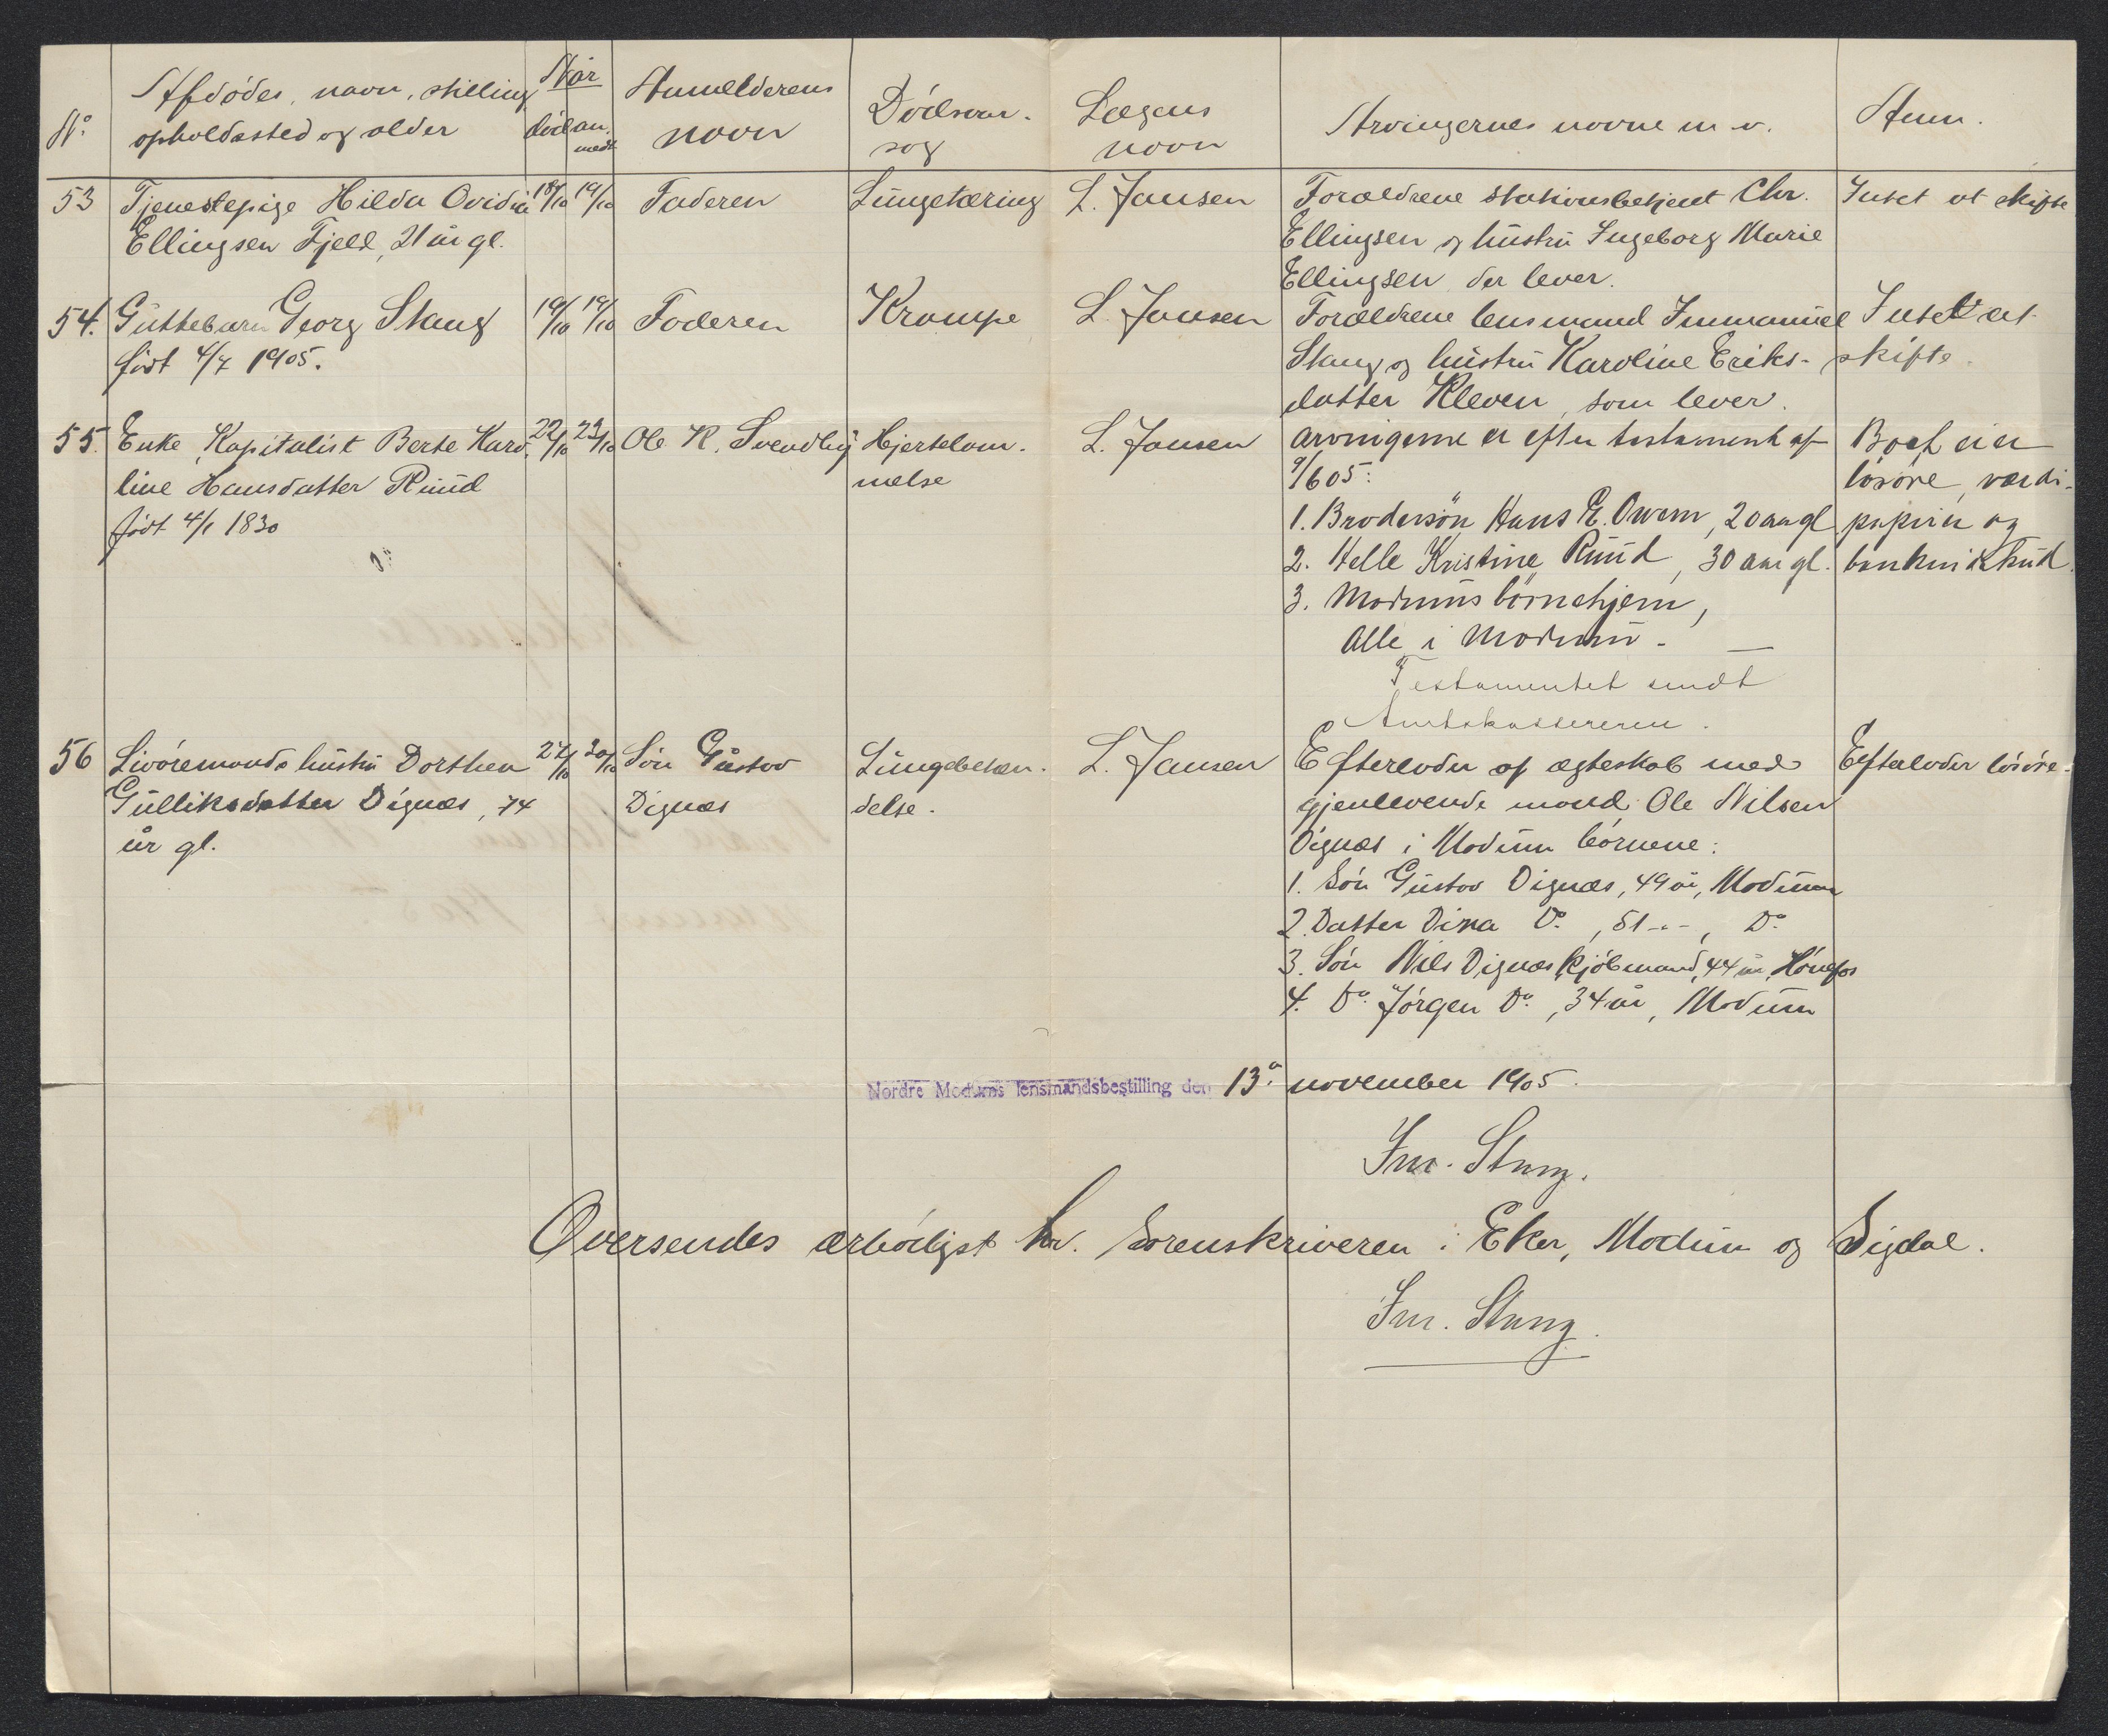 No
Afdødes, navn, stilling
opholdssted og alder
Når
død
an.
meldt
Anmelderens
navn
Dødsaar-
sag
Lægens
navn
Arvingernes navne m.v.
Anm.
53
Tjenestepige Hilda Ovidia
Ellingsen Fjeld, 21 år gl.
18/10
19/10
Faderen
Lungetæring
L. Jansen
Forældrene stationsbetjent Chr.
Ellingsen og hustru Ingeborg Marie
Ellingsen der lever.
Intet at skifte
54.
Guttebarn Georg Stang
født 4/7 1905.
19/10
19/10
Faderen
Krampe
L. Jansen
Forældrene lensmand Immanuel
Stang og hustru Karoline Eriks-
datter Kleven, som lever.
Intet at
skifte.
55.
Enke, Kapitalist Berte Karo-
line Hansdatter Ruud
født 4/1 1830
22/10
23/10
Ole K. Svendby
Hjertelam-
melse
L. Jansen
Arvingerne er efter testament af
9/6 05:
1. Brodersøn Hans E. Owern, 20 aar gl
2. Helle Kristine Ruud, 30 aar gl.
3. Modums børnehjem,
Alle i Modum. —
Testamentet sendt
Amtskassereren.
Boet eier
løsøre, værdi-
papirer og
bankinskud.
56
Livøremands hustru Dorthea
Gulliksdatter Dignæs, 74
år gl.
27/10
30/10
Søn Gustav
Dignæs
Lungebetæn-
delse.
L. Jansen
Efterlader af ægteskab med
gjenlevende mand Ole Nilsen
Dignæs i Modum børnene:
1. Søn Gustav Dignæs, 49 år, Modum
2. Datter Dina Do, 51 -"-, Do
3. Søn Nils Dignæs kjøbmand, 44 år, Hønefos
4. Do Jørgen Do, 34 år, Modum
Efterlader løsøre.
Nordre Modums lensmandsbestilling den 13. november 1905.
Im. Stang.
Oversendes ærbødigst hr. Sorenskriveren i Eker, Modum og Sigdal.
Im. Stang.